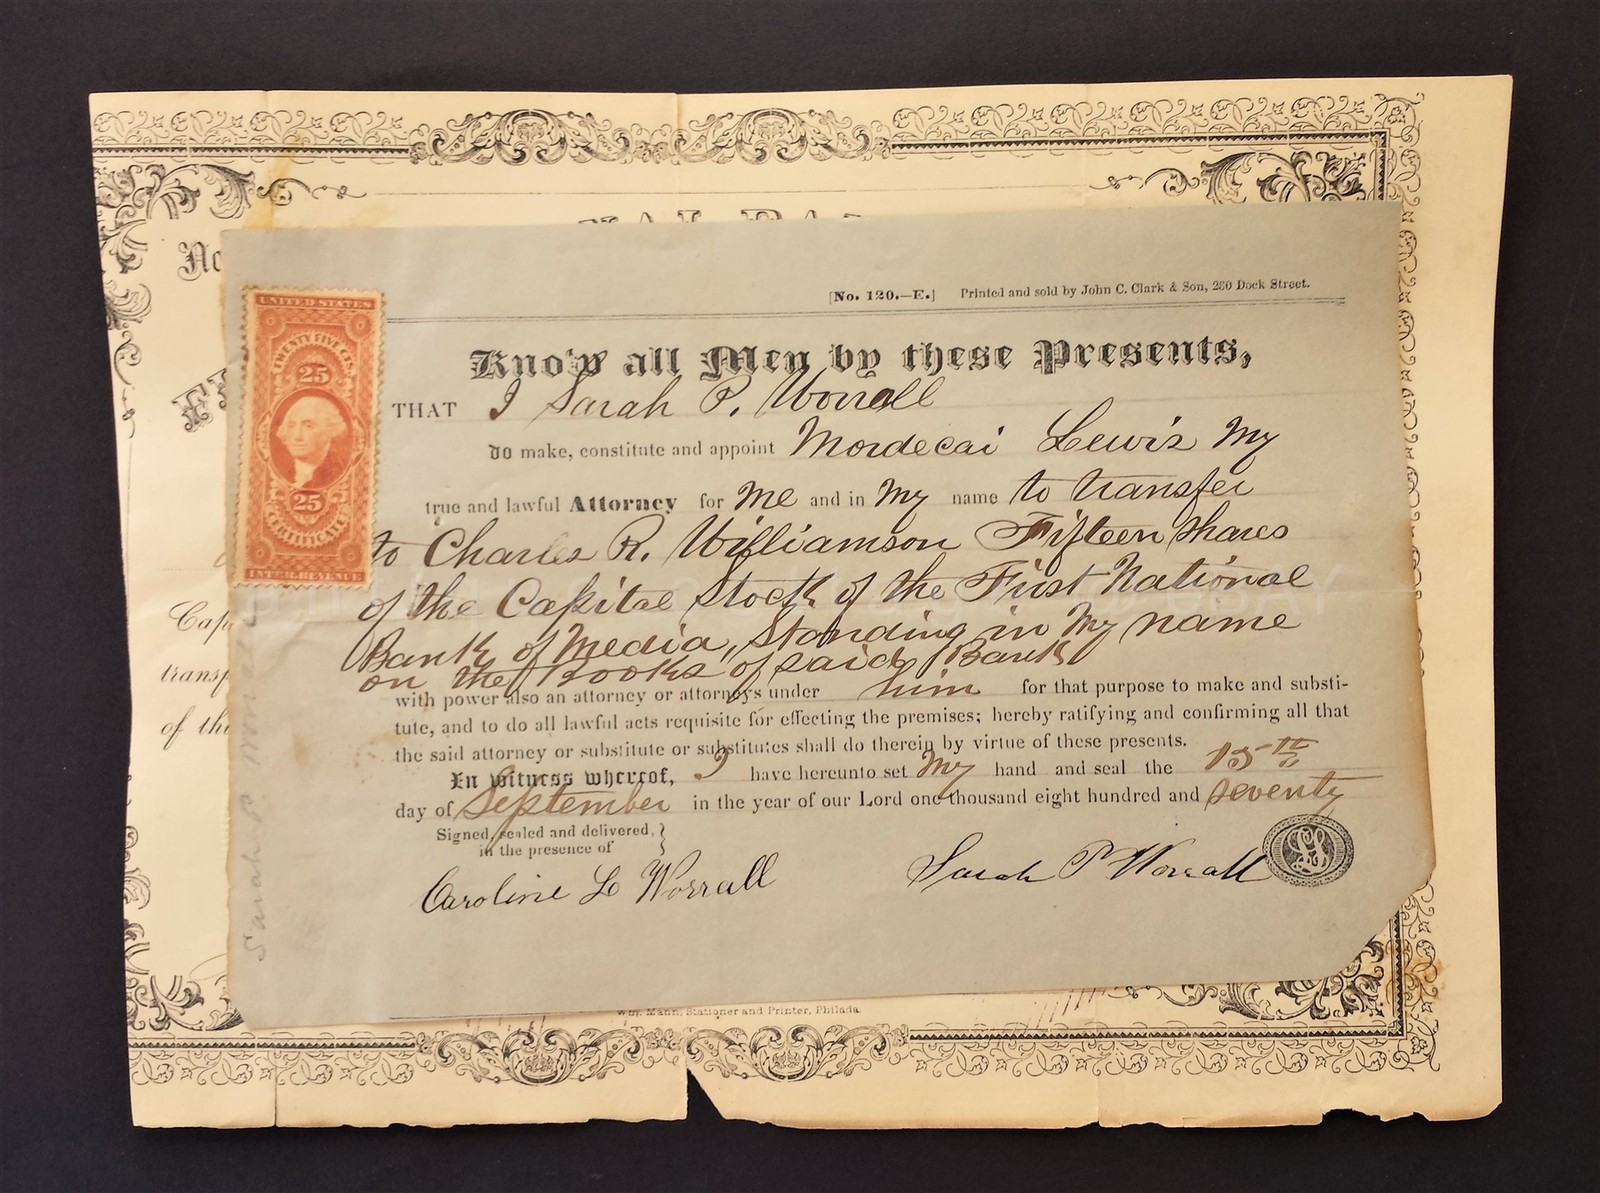 NAL BA
No
[No. 120.—E.] Printed and sold by John C. Clark & Son, 230 Dock Street.
UNITED STATES
TWENTY FIVE CTS.
25
25
CERTIFICATE
INTER. REVENUE
Know all Men by these Presents,
THAT I Sarah P. Worrall
do make, constitute and appoint Mordecai Lewis My
true and lawful Attorney for Me and in My name to transfer
to Charles R. Williamson Fifteen Shares
of the Capital Stock of the First National
Bank of Media, Standing in My name
on the Books of said Bank
with power also an attorney or attorneys under him for that purpose to make and substi-
tute, and to do all lawful acts requisite for effecting the premises; hereby ratifying and confirming all that
the said attorney or substitute or substitutes shall do therein by virtue of these presents.
In witness whereof, I have hereunto set My hand and seal the 15th
day of September in the year of our Lord one thousand eight hundred and seventy
Signed, sealed and delivered,
in the presence of
Caroline L Worrall
Sarah P Worrall
Sarah P. Worrall
Cap
transf
of the
Wm. Mann, Stationer and Printer, Philada.